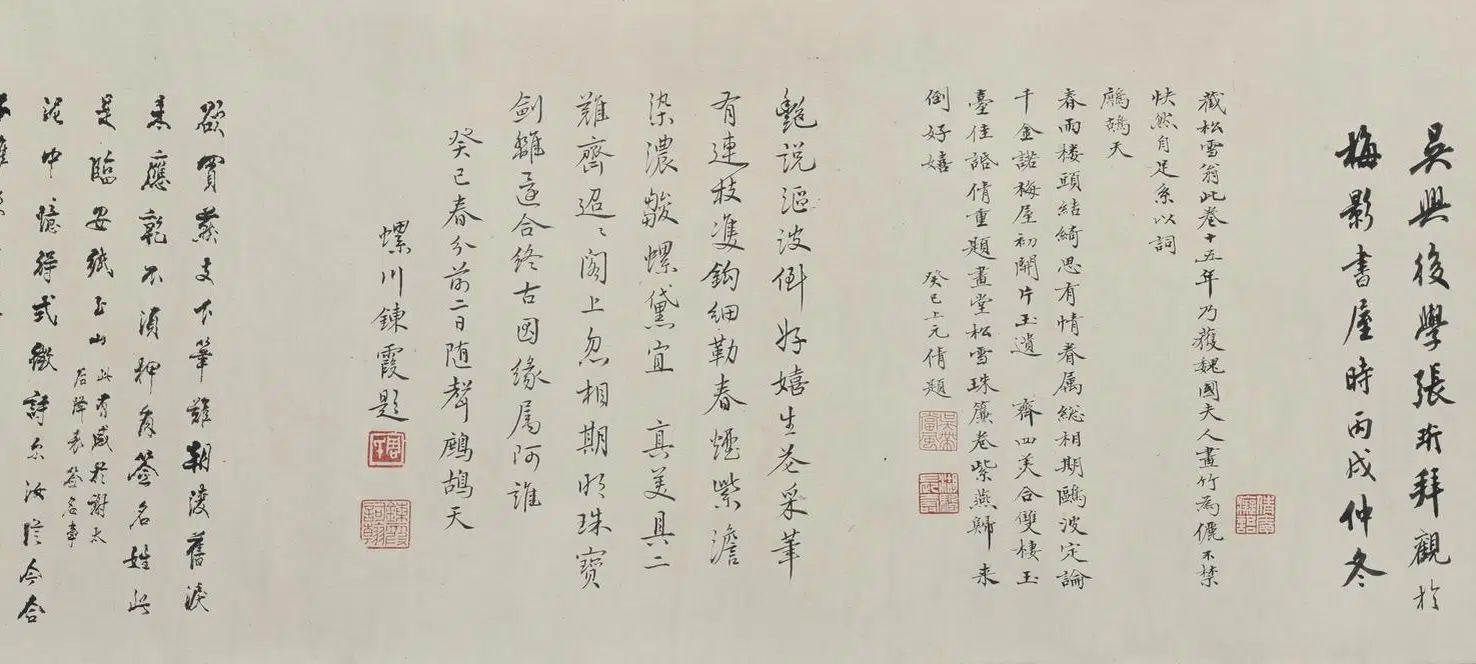 吳興後學張珩拜觀於
梅影書屋時丙戌仲冬
藏松雪翁此卷十五年乃獲魏國夫人畫竹為儷不禁
快然自足系以詞
鷓鴣天
春雨楼頭結綺思有情眷属総相期鷗波定論
千金諾梅屋初開片玉遺 齊四美合雙棲玉
臺佳話倩重題畫堂松雪珠簾卷紫燕歸来
倒好嬉
癸巳上元倩題
艷说漚波倒好嬉生花采筆
有連枝雙鈎細勒春烟紫澹
染濃皴螺黛宜 真美具二
難齊迢〻阁上忽相期明珠寶
劍離還合终古因缘属阿誰
癸巳春分前二日随聲鷓鴣天
螺川鍊霞題
欲買燕支下筆難朝淩舊淚
未應乾不須押肩簽名姓此
是臨安紙玉山
此有感於謝太
后降表簽名事
泥中憶得式微詩